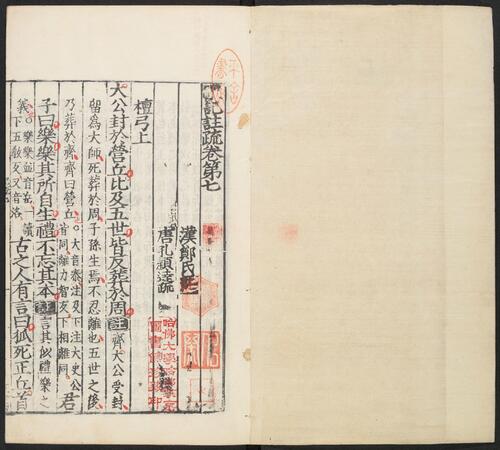 記註疏卷第七
漢鄭氏註
唐孔穎達疏
檀弓上
大公封於營丘比及五世皆反葬於周註齊大公受封
留為大師死葬於周子孫生焉不忍離也五世之後
乃葬於齊齊曰營丘○大音泰注及下注大史公
皆同離力智反下相離同君
子曰樂樂其所自生禮不忘其本註言其似禮樂之
義○樂樂並音岳一讀
下五教反又音洛古之人有言曰狐死正丘首
哈佛大學哈佛燕京
圖書館珍藏印